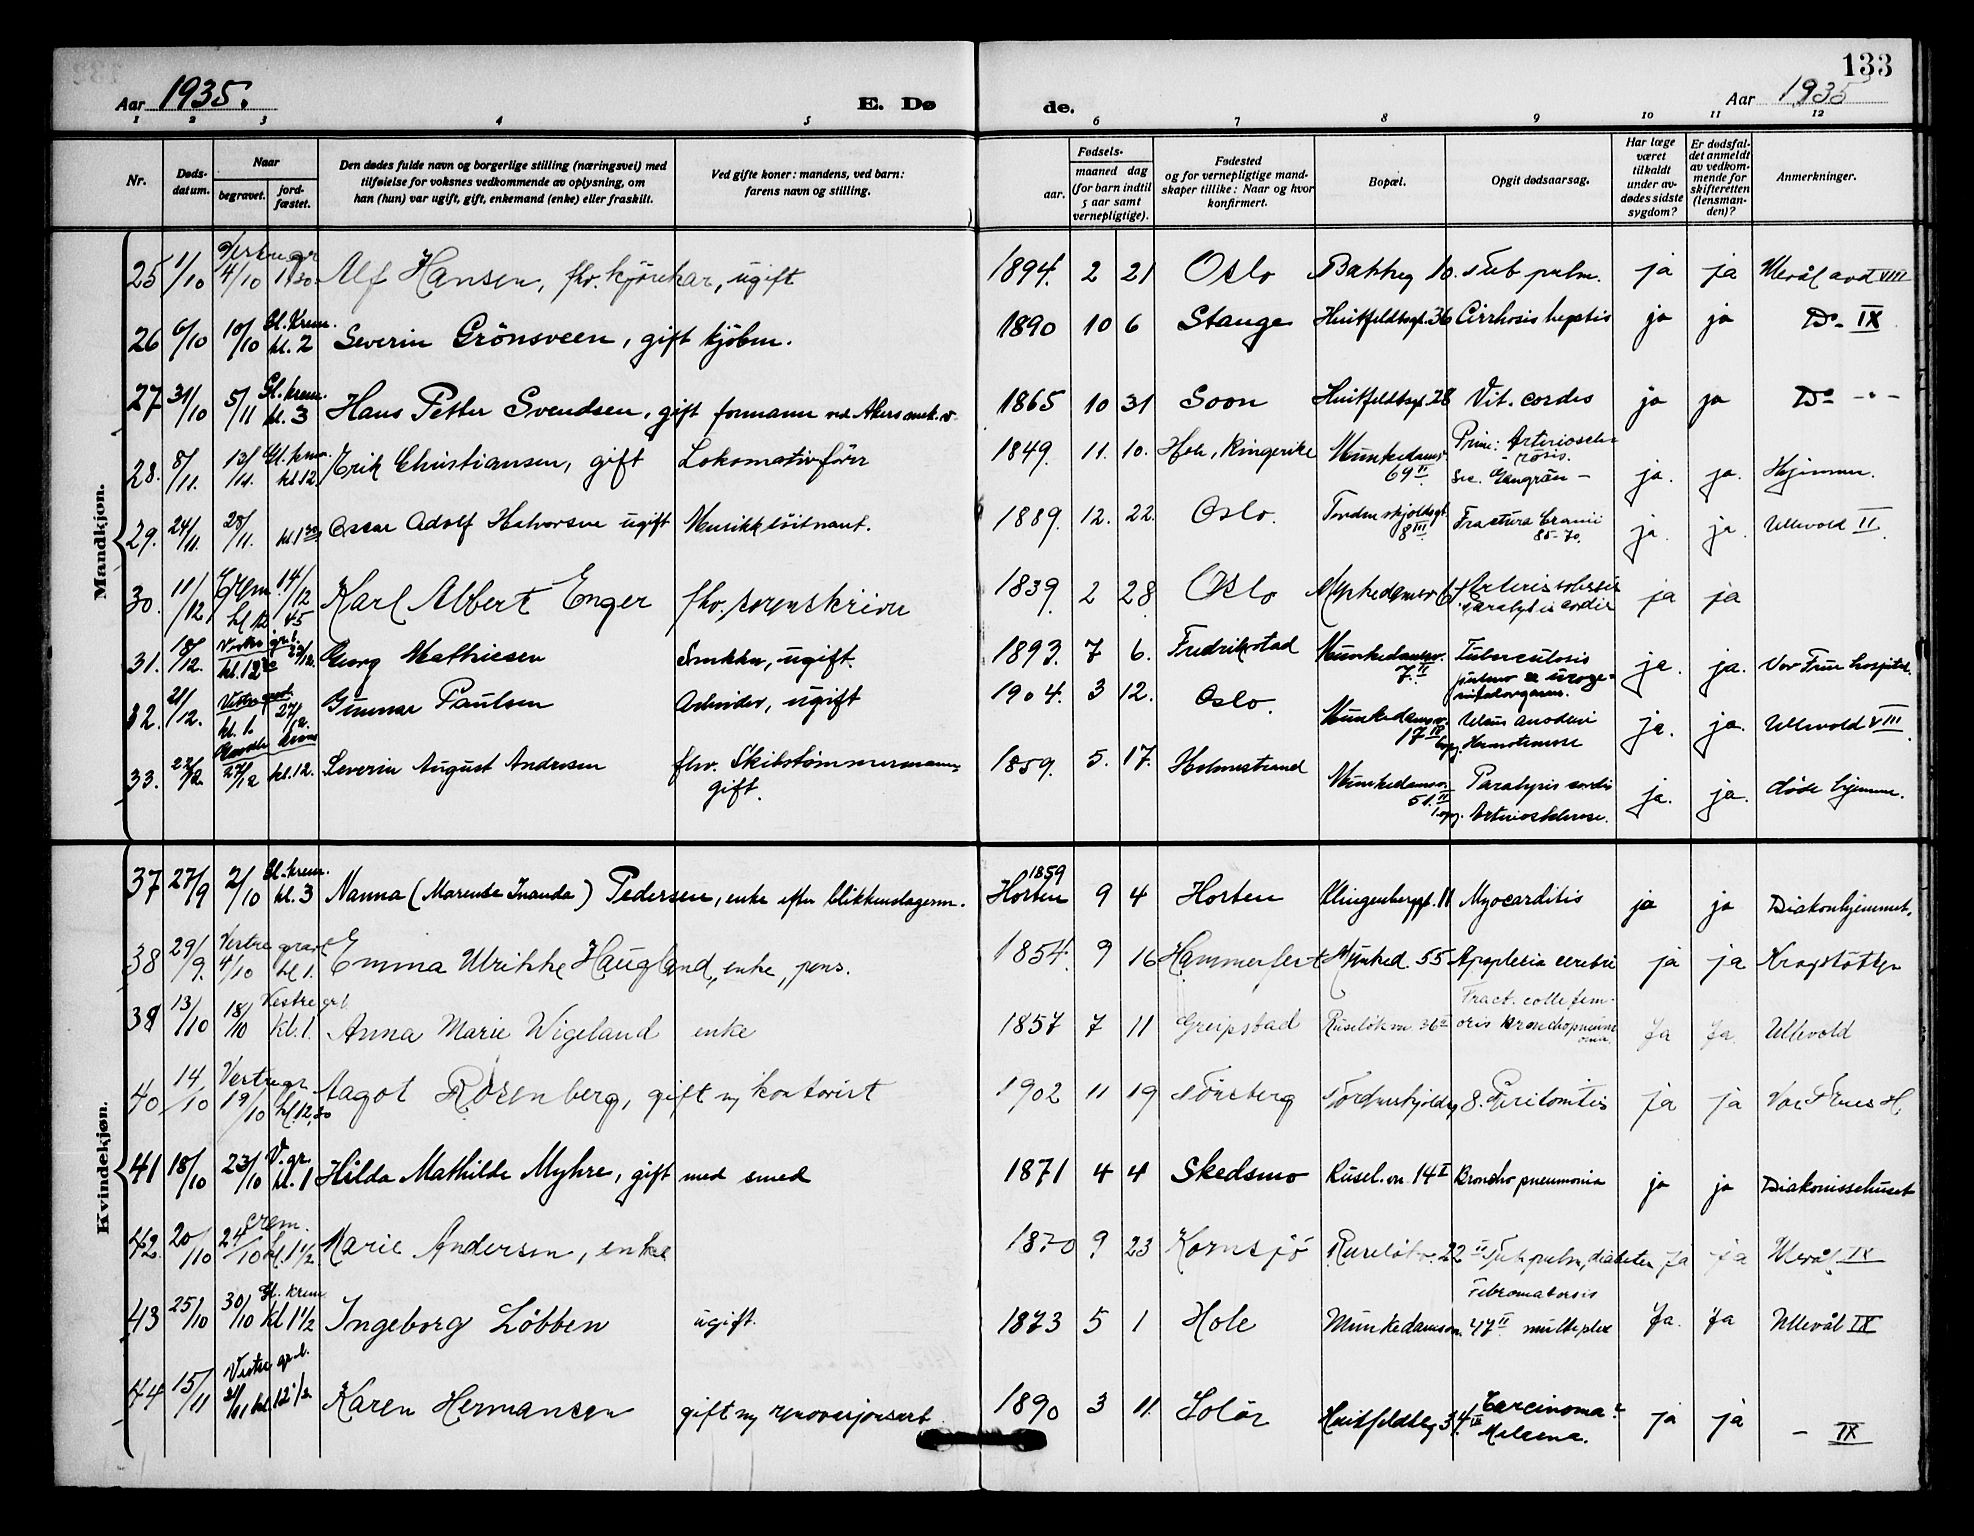 133
Aar 1935. E. Dø de. Aar 1935
1 2 3 4 5 6 7 8 9 10 11 12
Nr. Døds-datum. Naar begravet. jord-fæstet. Den dødes fulde navn og borgerlige stilling (næringsvei) med tilføielse for voksnes vedkommende av oplysning, om han (hun) var ugift, gift, enkemand (enke) eller fraskilt. Ved gifte koner: mandens, ved barn: farens navn og stilling. Fødsels- aar. maaned dag (for barn indtil 5 aar samt vernepligtige). Fødested og for vernepligtige mandskaper tillike: Naar og hvor konfirmert. Bopæl. Opgit dødsaarsag. Har læge været tilkaldt under avdødes sidste sygdom? Er dødsfaldet anmeldt av vedkommende for skifteretten (lensmanden)? Anmerkninger.
Mandkjøn.
25 1/10 Vestre gr 4/10 Alf Hansen, fhv. kjørekar, ugift 1894. 2 21 Oslo Bakkeg 10. Tub pulm. ja ja Ulevål avd VIII
26 6/10 10/10 Gl. Krem. kl. 2 Severin Grönsveen, gift kjöbm. 1890 10 6 Stange Huitfeldtsgt. 36 Cirrhosis hepatis ja ja Do- IX
27 31/10 5/11 Gl. krem. kl. 3 Hans Petter Svendsen, gift formann ved Akers mek. v. 1865 10 31 Soon Huitfeldtsgt. 28 Vit. cordis ja ja Do - " -
28. 8/11. 13/11. Gl. krem. kl 12. Erik Christiansen, gift Lokomotivförer 1849. 11. 10. Hole, Ringerike Munkedamsv 69 II Prim: Arterioscle-rosis. Sec. Gangrän - ja. ja. Hjemme.
29. 24/11. 28/11. kl 1 30 Oscar Adolf Halvorsen ugift Musikklöitnant. 1889. 12. 22. Oslo. Tordenskjoldsgt. 8 III Fractura Cranii 85-70. ja. ja. Ullevold II.
30. 11/12 Krem kl 12 45 14/12 Karl Albert Enger fhv. sorenskriver 1839 2 28 Oslo ja ja
31. 18/12. Vestre grl. kl. 12 23/12. Georg Mathiesen Snekker, ugift. 1893. 7 6. Fredrikstad Munkedamsv. 7. II Tuberculosis pulmo & uroge-nitalorganer. ja. ja. Vor Frue hospital.
32. 21/12. Vestre gravl. kl. 1. 27/12. Gunnar Paulsen Arbeider, ugift 1904. 3 12. Oslo. Munkedamsv. 17 III opg. Ulcus duodeni Hematemese ja. ja. Ullevold VIII.
33. 22/12. 27/12 kl. 12. Severin August Andresen fhv. Skibstømmermann, gift. 1859. 5. 17. Holmestrand Munkedamsv. 51. II opg. Paralysis cordis Arteriosklerose. ja. ja. döde hjemme.
Kvindekjøn.
37 27/9 2/10 Gl. krem. kl. 3 Nanna (Marense Inanda) Pedersen, enke efter blikkenslagerm. 1859 Horten 9 4 Horten Klingenberggt. 11 Myocarditis ja ja Diakonhjemmet,
38 29/9. Vestre gravl 4/10 kl 1. Emma Ulrikke Haugland, enke, pens. 1854. 9 16 Hammerfest Munked. 55 Apoplexia cerebri ja ja Kragstötten
39 13/10 18/10 Vestre grl. kl. 1. Anna Marie Wigeland enke 1857 7 11 Greipstad Ruselökvn 36 II Fract. colle fem-oris Bronchopneum oma. Ja Ja. Ullevold
40 14/10 Vestre gr 19/10 kl. 12,30 Aagot Rosenberg, gift m/ kontorist 1902 11 19 Tönsberg Tordenskjoldsg 8. Peritonitis ja ja Vor Frues H.
41 18/10 23/10 V. gr. kl. 1 Hilda Mathilde Myhre, gift med smed 1871 4 4 Skedsmo Rusel. vn. 14 I Broncho pneumonia ja ja Diakonissehuset
42. 20/10 24/10 crem. kl. 1 1/2 Marie Andersen, enke 1870 9 23 Kornsjö Ruselökv. 22 II Tub. pulm, diabetes ja ja Ulevål IX
43 25/10 30/10 Gl. krem kl 1 1/2 Ingeborg Löbben ugift. 1873 5 1 Hole Munkedamsvn. 47 II Febromatorsis multiplex Ja. Ja Ullevål IX
44 15/11 Vestre gr.l. 21/11 kl. 12 1/2 Karen Hermansen gift m/ renovasjonsarb. 1890 3 11. Solör Huitfeldtsg 34 IV Carcinoma? Melaena. ja ja - IX